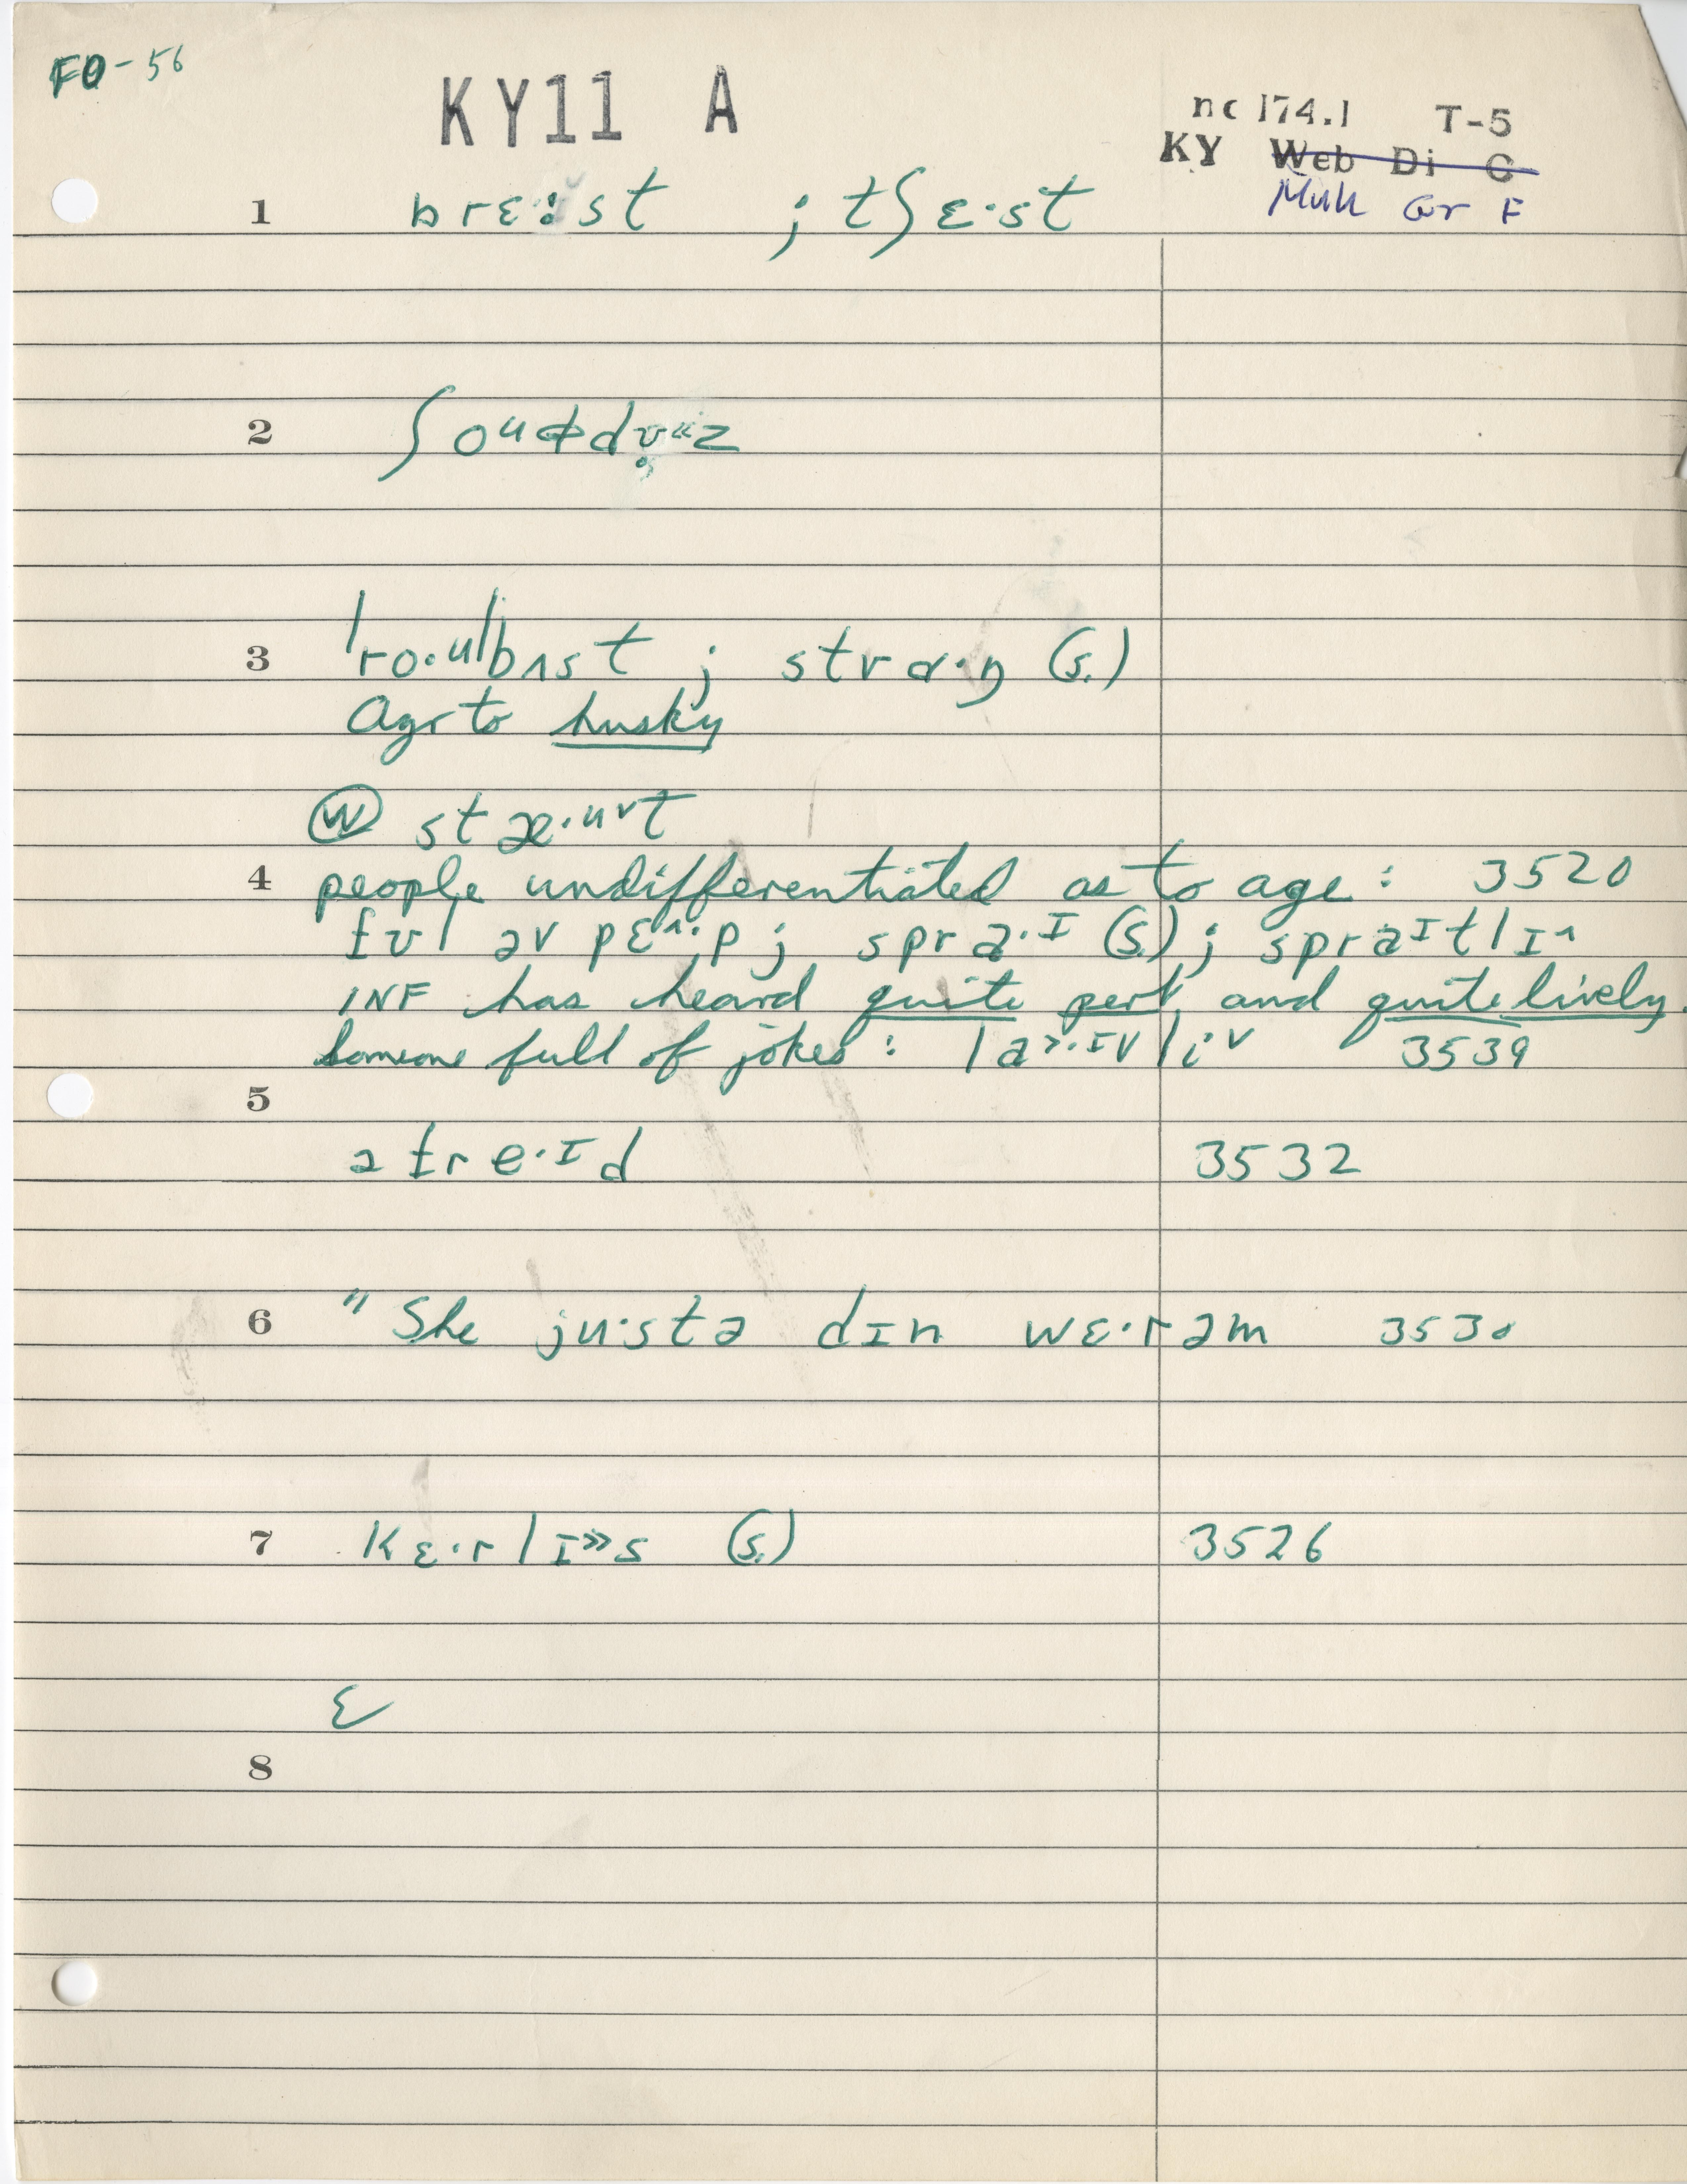 FO-56
KY11 A
nc 174.1 T-5
KY Web Di C
Muh Gr F
1 brɛ:st ; tʃɛ·st
2 ʃouɸdʊ«z
3 'ro·u|bʌst ; strɑ·ŋ (s.)
Agr to husky
Ⓦ stæ·uᵛt
4 people undifferentiated as to age : 3520
fʊl əv pɛ^·p ; spra·ɪ (s.) ; spraɪtlɪ^
INF has heard quite pert and quite lively.
someone full of jokes : la>·ɪvliᵛ 3539
5
əfre·ɪd 3532
6 " She ju·stə dɪn wɛ·rəm 3530
7 kɛ·rlɪ»s (s.) 3526
ɛ
8